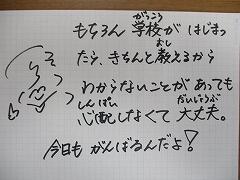 もちろん 学校が はじまっ
たら、きちんと教えるから
わからないことが あっても
心配しなくて 大丈夫。
今日も がんばるんだよ!